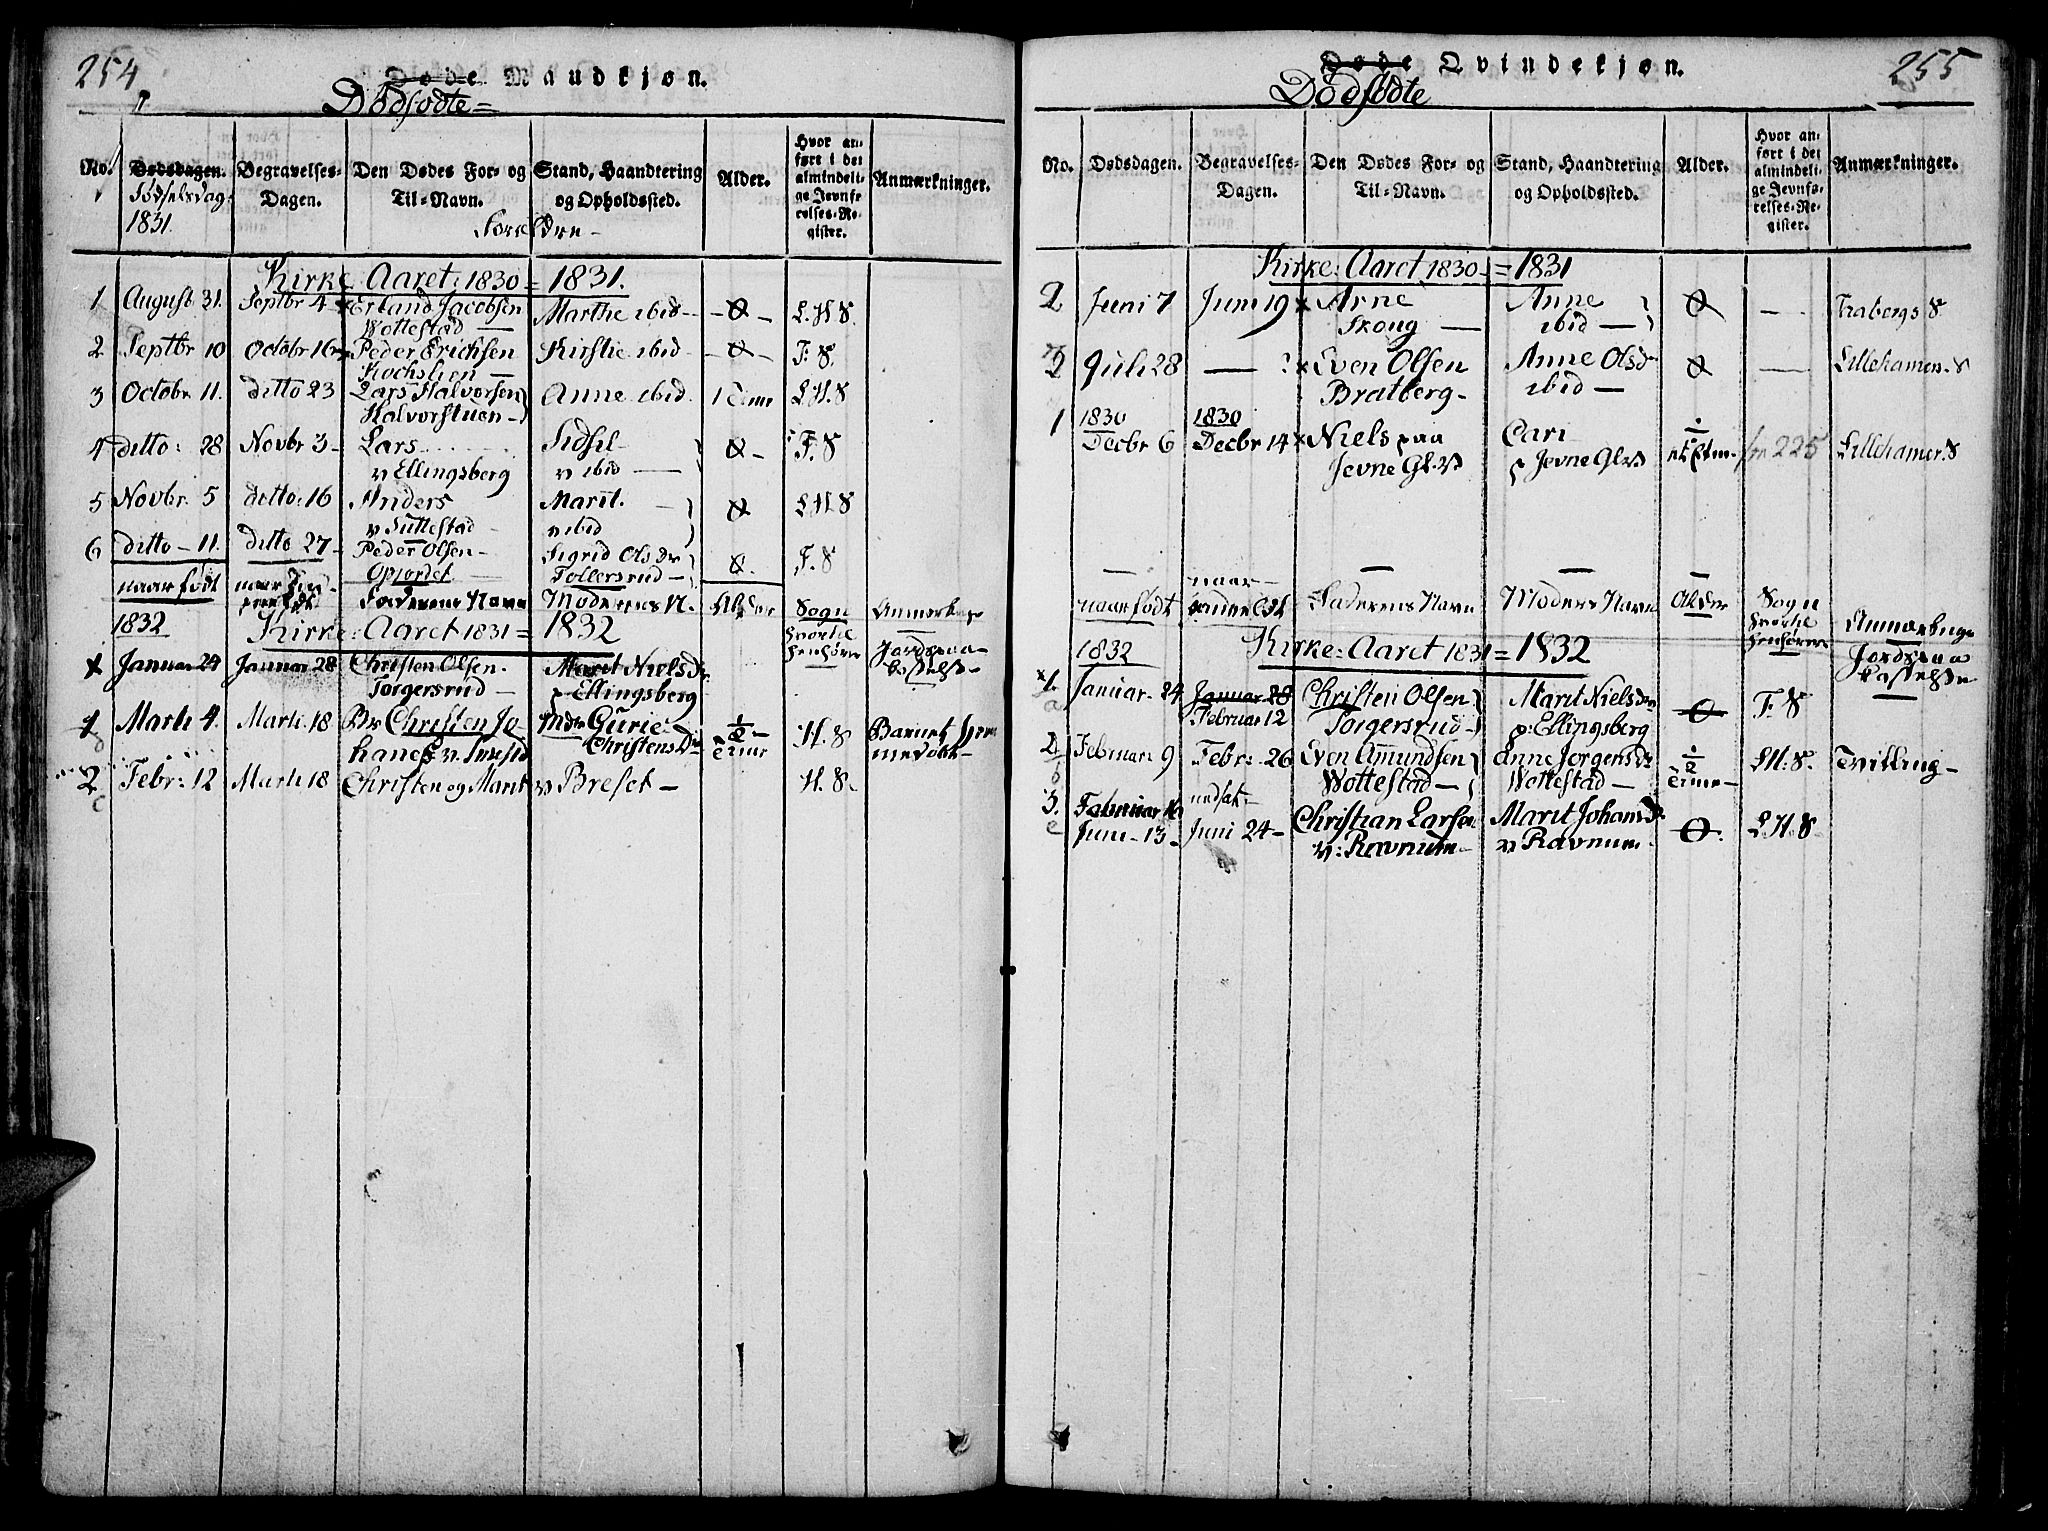 254
Døde Mandkjøn.
Dødfødte=
No. Dødsdagen. Begravelses-Dagen. Den Dødes For- og Til-Navn. Stand, Haandtering og Opholdssted. Alder. Hvor anført i det almindelige Jevnførelses-Register. Anmærkninger.
Fødselsdag
1831.
Forældre -
Kirke: Aaret: 1830 = 1831.
1 August 31. Septbr 4 Erland Jacobsen Marthe ibid - 0 - L.H.8.
Wottestad
2 Septbr 10 Octobr 16 Peder Erichsen Kirstie ibid - 0 - F: 8.
3 Octobr 11. ditto 23 Lars Halvorsen Anne ibid. 1 Time L.H.8
Halvorstuen -
4 ditto: 28 Novbr 3 - Lars Sidsil - 0 - F. 8
v Ellingsberg v ibid
5 Novbr. 5 ditto: 16 Anders Marit. - 0 L.H.8
v Suttestad v ibid
6 ditto - 11. ditto 27 - Peder Olsen - Sigrid Olsdr 0. F. 8
Opjordet Tollersrud -
naar født Faderens Navn Moderens N. Alder Sogn
1832 Kirke: Aaret 1831 = 1832
1 Januar 24 Januar 28 Christen Olsen. Marit Nielsdr
Torgersrud - p Ellingsberg
1 Marti 4. Marti. 18 Br Christen Jo Gurie ½ H. 8 Barnet
Christensdr Time
2 Febr: 12 Marti 18 Christen og Marit v Breset - H. 8.
255
Døde Qvindekjøn.
Dødfødte
No. Dødsdagen. Begravelses-Dagen. Den Dødes For- og Til-Navn. Stand, Haandtering og Opholdssted. Alder. Hvor anført i det almindelige Jevnførelses-Register. Anmærkninger.
Kirke: Aaret 1830 - = 1831
2 Juni 7 Juni 19 Arne Anne 0 - Faabergs 8
Skoug - ibid -
Juli 28 - Even Olsen Anne Olsdr 0 - Lillehamer. 8
Bratberg - ibid -
1830 1830
1 Decbr 6 Decbr 14 Niels paa Cari 225 Lillehamer. 8
Jevne p Jevne
naar
naar født Faderens Navn Moders Navn Alder Sogn
1832 Kirke: Aaret 1831 = 1832
1. Januar. 24 Januar 28 Christen Olsen Marit Nielsdr 0 F. 8
Februar 12 Torgersrud - p: Ellingsberg
2 Februari 9 Febr: 26 Even Amundsen Anne Jorgensdr ½ L.H. 8. Tvilling -
Wottestad - Wottestad - Time -
3. Februar
Juni - 13 - Juni 24 - Christian Larsen Marit Johansdr 0. L.H.8
v: Ravnum - v Ravnum.